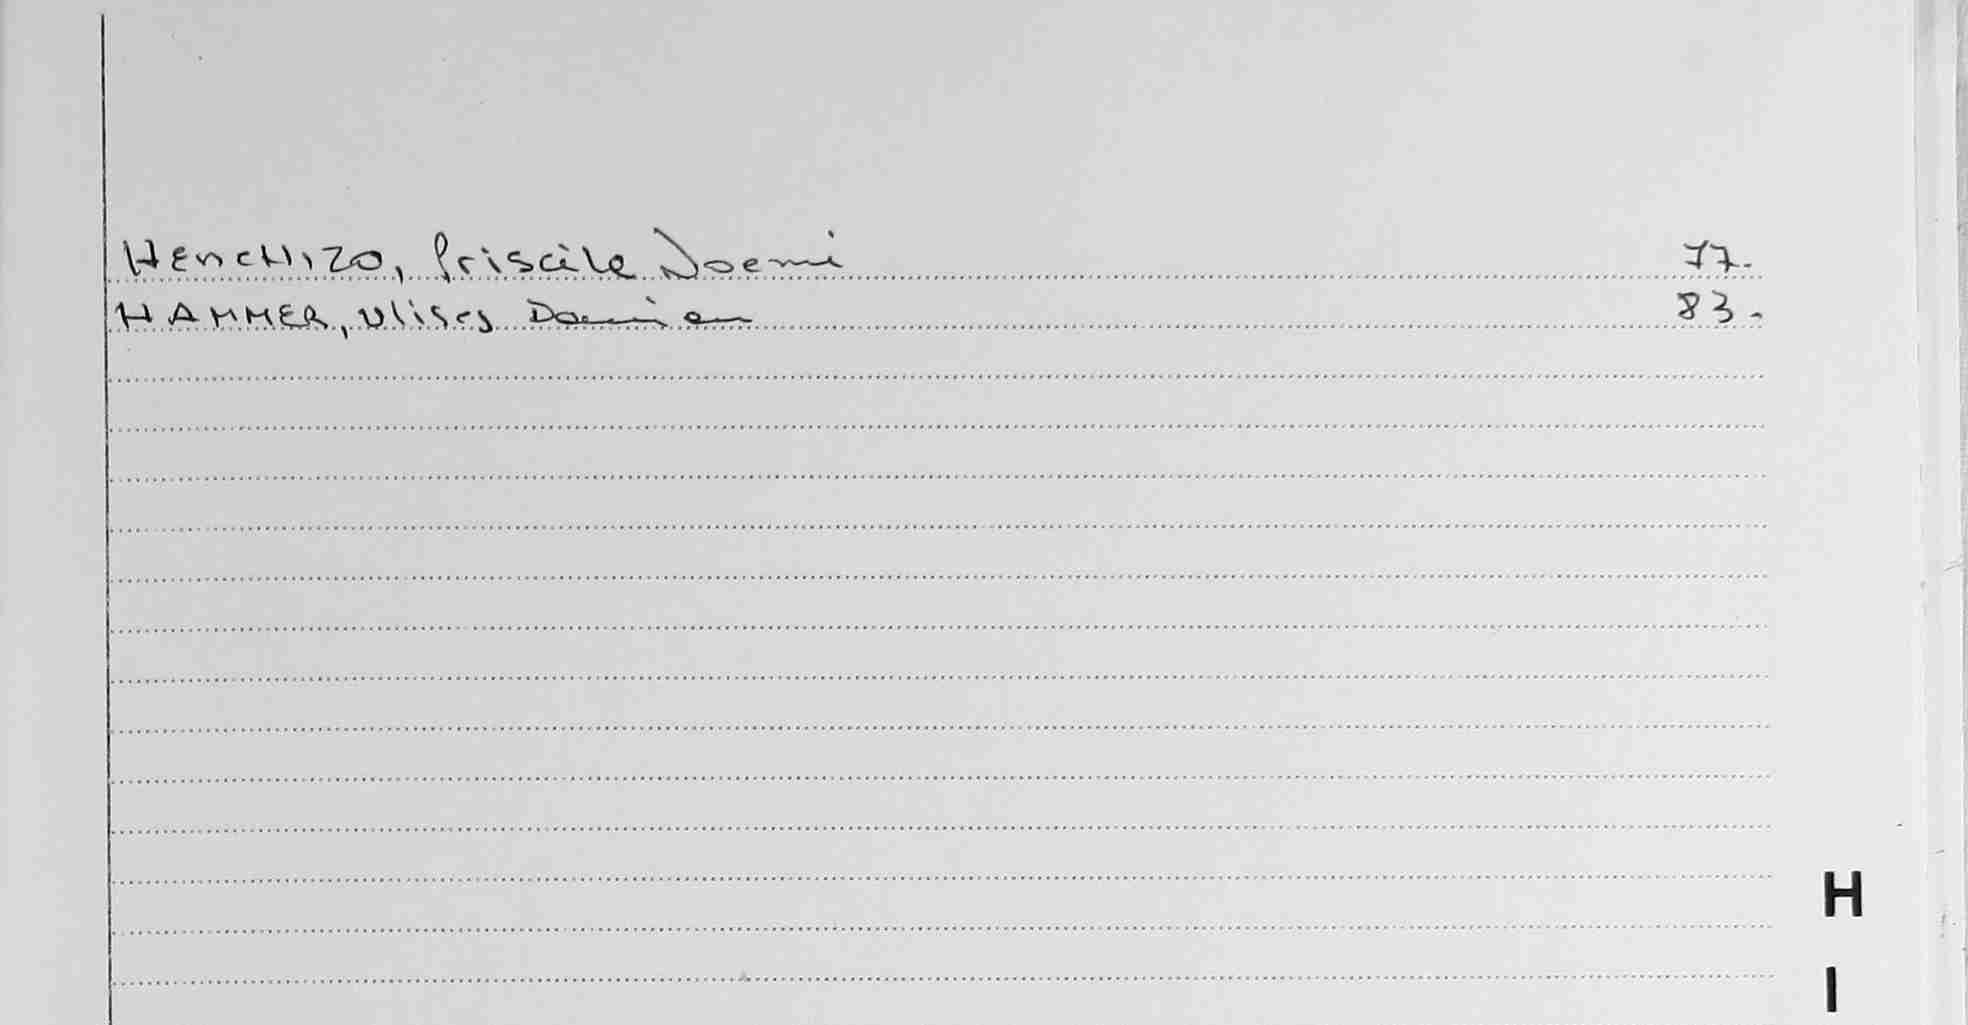 HENCHIZO, Priscila Noemi 77.
HAMMER, Ulises Damian 83.
H
I